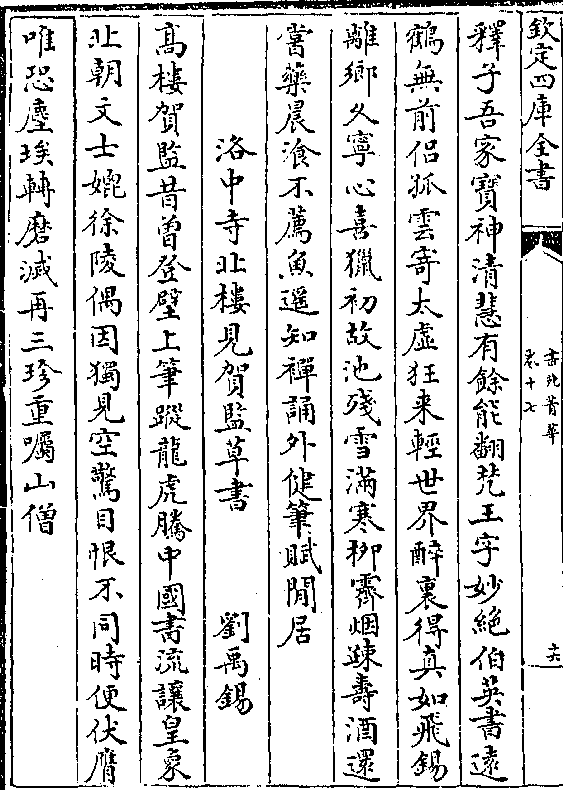 欽定四庫全書
書苑菁華
卷十七
十六
釋子吾家寶神清慧有餘能翻梵王字妙絶伯英書逺
鶴無前侣孤雲寄太虚狂来輕世界醉裏得真如飛錫
離鄉久寧心喜獵初故池殘雪滿寒栁霽烟疎壽酒還
嘗藥晨飡不薦魚遥知禪誦外健筆賦閒居
洛中寺北樓見賀監草書　劉禹錫
髙樓賀監昔曽登壁上筆蹤龍虎騰中國書流讓皇象
北朝文士媿徐陵偶因獨見空驚目恨不同時便伏膺
唯恐塵埃轉磨滅再三珍重囑山僧